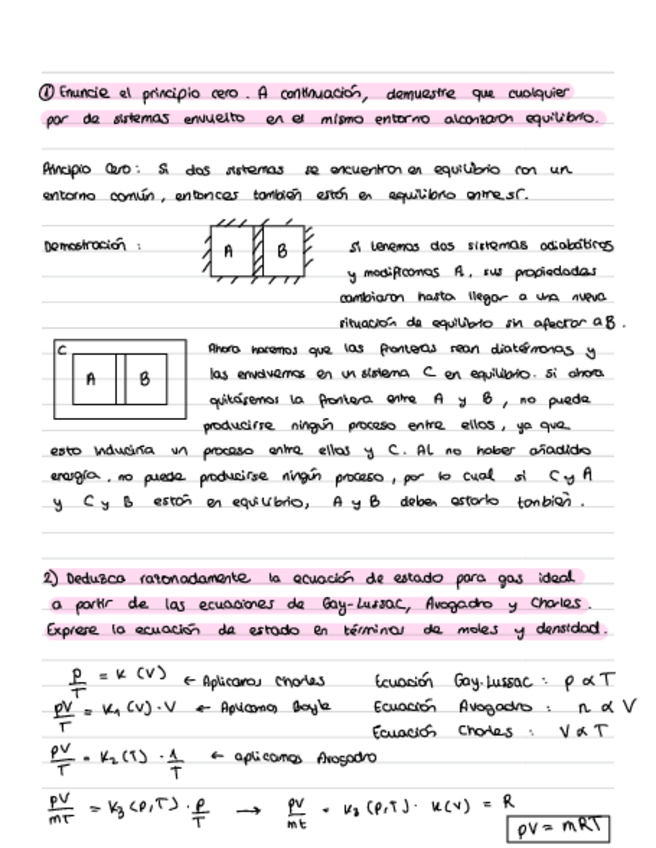 ① Enuncie el principio cero. A continuación, demuestre que cualquier
par de sistemas envuelto en el mismo entorno alcanzaran equilibrio.
Principio Cero: Si dos sistemas se encuentran en equilibrio con un
entorno común, entonces también están en equilibrio entre sí.
Demostración:
A B
Si tenemos dos sistemas adiabáticos
y modificamos A, sus propiedades
cambiaran hasta llegar a una nueva
situación de equilibrio sin afectar a B.
C
A B
Ahora hacemos que las fronteras sean diatérmanas y
las envolvemos en un sistema C en equilibrio. Si ahora
quitásemos la frontera entre A y B, no puede
producirse ningún proceso entre ellos, ya que
esto induciría un proceso entre ellos y C. Al no haber añadido
energía, no puede producirse ningún proceso, por lo cual si C y A
y C y B están en equilibrio, A y B deben estarlo también.
2) Deduzca razonadamente la ecuación de estado para gas ideal
a partir de las ecuaciones de Gay-Lussac, Avogadro y Charles.
Exprese la ecuación de estado en términos de moles y densidad.
p/T = K (V) ← Aplicamos Charles
pV/T = K₁ (V) · V ← Aplicamos Boyle
pV/T = K₂ (T) · 1/T ← aplicamos Avogadro
Ecuación Gay-Lussac: p ∝ T
Ecuación Avogadro: n ∝ V
Ecuación Charles: V ∝ T
pV/mT = K₃ (p,T) · p/T → pV/mt = K₃ (p,T) · K(V) = R
pV = mRT